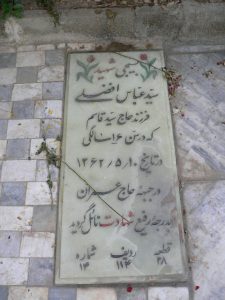 بسیجی شهید
سید عباس افضلی
فرزند حاج سید قاسم
که در سن ۱۸ سالگی
در تاریخ ۱۳۶۲/۵/۱۰
در جبهه حاج عمران
بدرجه رفیع شهادت نائل گردید
قطعه ردیف شماره
۲۸ ۱۱۴ ۱۴